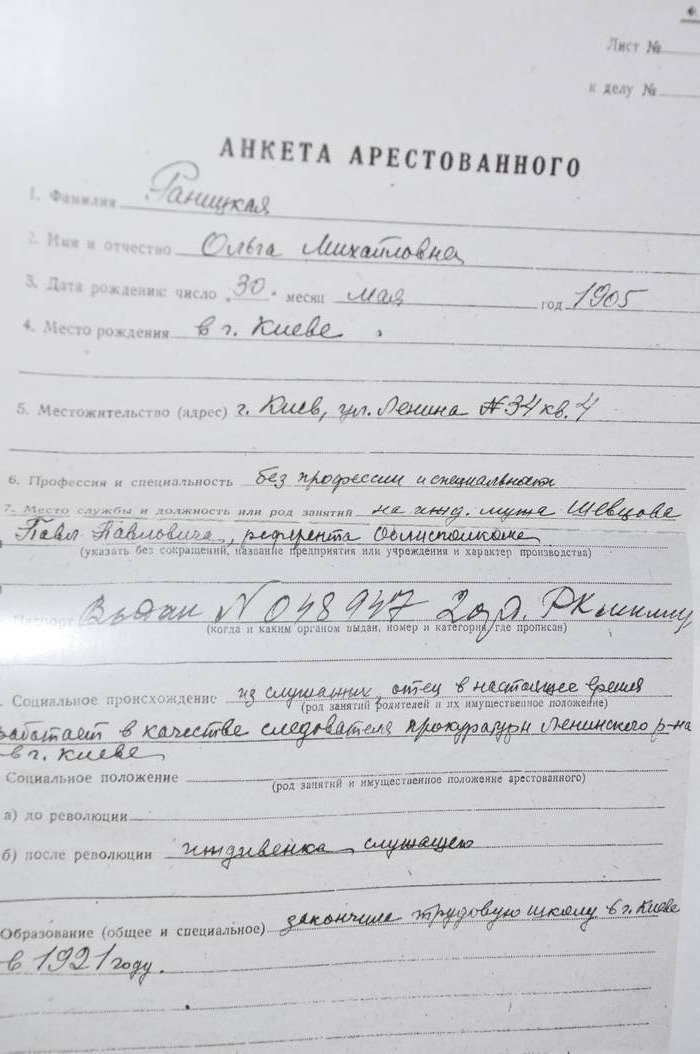 Лист №
к делу №
АНКЕТА АРЕСТОВАННОГО
1. Фамилия Раницкая
2. Имя и отчество Ольга Михайловна
3. Дата рождения: число „30" месяц мая год 1905
4. Место рождения в г. Киеве
5. Местожительство (адрес) г. Киев, ул. Ленина №34 кв. 4
6. Профессия и специальность без профессии и специальности
7. Место службы и должность или род занятий на ижд. мужа Шевцова
Павл. Павловича, референта Облисполкома
(указать без сокращений, название предприятия или учреждения и характер производства)
Паспорт Выдан N 048947 2 отд. РК милиц
(когда и каким органом выдан, номер и категория, где прописан)
Социальное происхождение из служащих, отец в настоящее время
(род занятий родителей и их имущественное положение)
работает в качестве следователя прокуратуры Ленинского р-на
в г. Киеве
Социальное положение
(род занятий и имущественное положение арестованного)
а) до революции
б) после революции иждивенка служащего
Образование (общее и специальное) закончила трудовую школу в г. Киеве
в 1921 году.